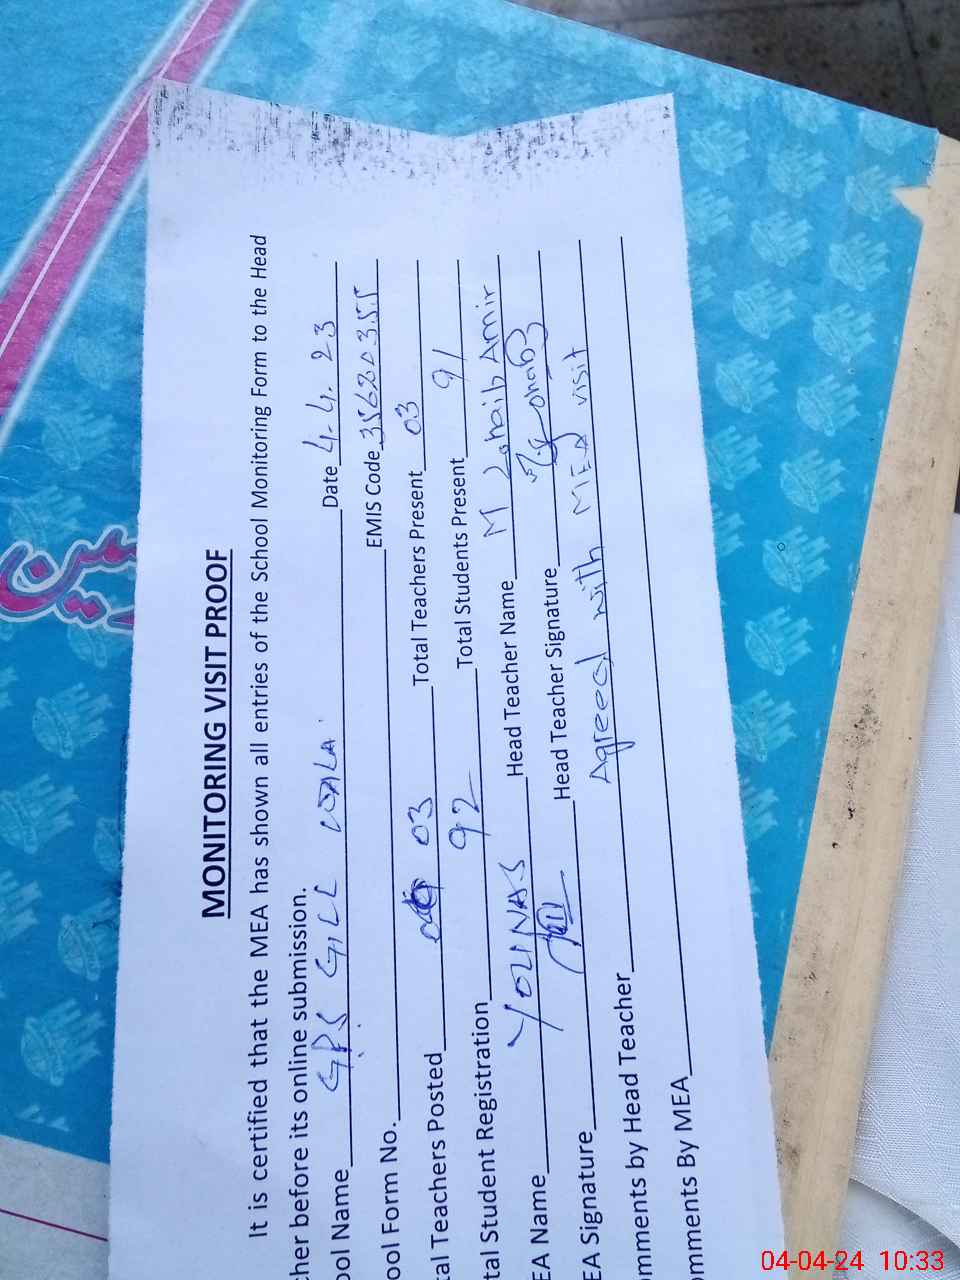 MONITORING VISIT PROOF
It is certified that the MEA has shown all entries of the School Monitoring Form to the Head
cher before its online submission.
ool Name GPS GILL WALA Date 4.4.23
ool Form No. EMIS Code 35620355
tal Teachers Posted 03 Total Teachers Present 03
tal Student Registration 92 Total Students Present 91
EA Name YOUNAS Head Teacher Name M Zohaib Amir
EA Signature Head Teacher Signature Zohaib
omments by Head Teacher Agreed with MEA visit
omments By MEA
04-04-24 10:33